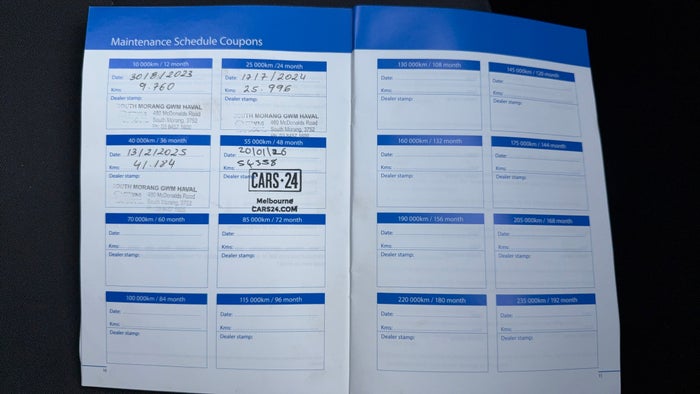 Maintenance Schedule Coupons
10 000km / 12 month
Date: 30/8/2023
Kms: 9.760
Dealer stamp:
SOUTH MORANG GWM HAVAL
480 McDonalds Road
South Morang, 3752
25 000km / 24 month
Date: 17/7/2024
Kms: 25.996
Dealer stamp:
SOUTH MORANG GWM HAVAL
480 McDonalds Road
South Morang, 3752
40 000km / 36 month
Date: 13/2/2025
Kms: 41.184
Dealer stamp:
SOUTH MORANG GWM HAVAL
480 McDonalds Road
South Morang, 3752
55 000km / 48 month
Date: 20/01/26
Kms: 54358
Dealer stamp:
CARS·24
Melbourne
CARS24.COM
70 000km / 60 month
Date:
Kms:
Dealer stamp:
85 000km / 72 month
Date:
Kms:
Dealer stamp:
100 000km / 84 month
Date:
Kms:
Dealer stamp:
115 000km / 96 month
Date:
Kms:
Dealer stamp:
130 000km / 108 month
Date:
Kms:
Dealer stamp:
145 000km / 120 month
Date:
Kms:
Dealer stamp:
160 000km / 132 month
Date:
Kms:
Dealer stamp:
175 000km / 144 month
Date:
Kms:
Dealer stamp:
190 000km / 156 month
Date:
Kms:
Dealer stamp:
205 000km / 168 month
Date:
Kms:
Dealer stamp:
220 000km / 180 month
Date:
Kms:
Dealer stamp:
235 000km / 192 month
Date:
Kms:
Dealer stamp: